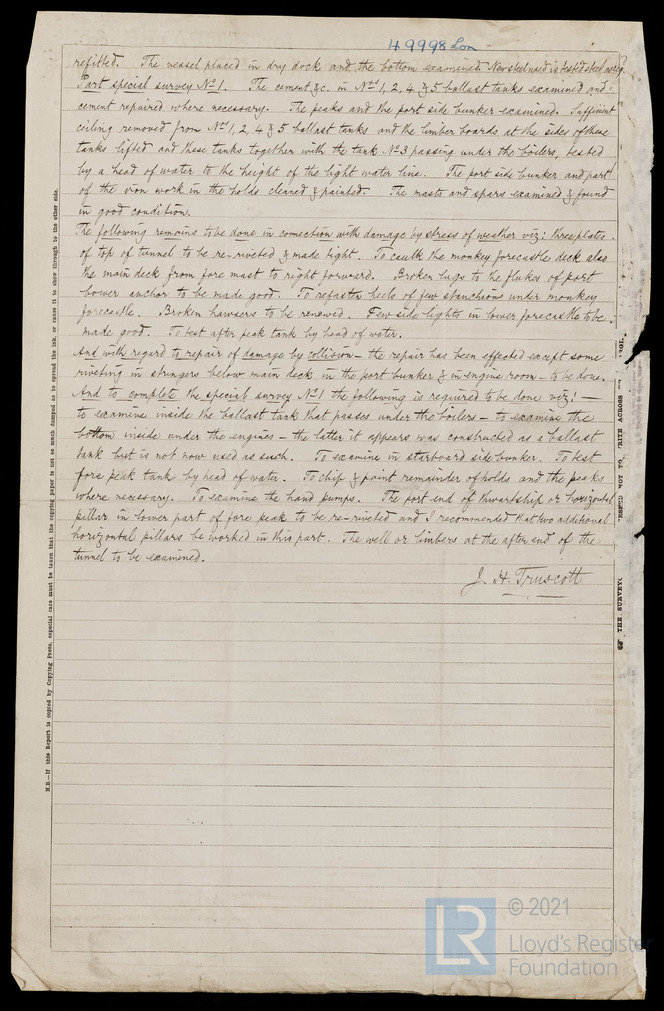 49998 Lon
refitted. The vessel placed in dry dock and the bottom examined. New steel used is tested steel as reg.
Part special survey No 1. The cement &c. in Nos 1, 2, 4 & 5 ballast tanks examined and
cement repaired where necessary. The peaks and the port side bunker examined. Sufficient
ceiling removed from Nos 1, 2, 4 & 5 ballast tanks and the limber boards at the sides of these
tanks lifted and these tanks together with the tank No 3 passing under the boilers, tested
by a head of water to the height of the light water line. The port side bunker and part
of the iron work in the holds cleaned & painted. The masts and spars examined & found
in good condition.
The following remains to be done in connection with damage by stress of weather viz: three plates
of top of tunnel to be re-riveted & made tight. To caulk the monkey forecastle deck also
the main deck from fore mast to right forward. Broken lugs to the flukes of port
bower anchor to be made good. To refasten heels of few stanchions under monkey
forecastle. Broken hawsers to be renewed. Few side lights in lower forecastle to be
made good. To test after peak tank by head of water.
And with regard to repair of damage by collision – the repair has been effected except some
riveting in stringers below main deck in the port bunker & in engine room – to be done.
And to complete the special survey No 1 the following is required to be done viz: –
to examine inside the ballast tank that passes under the boilers – to examine the
bottom inside under the engines – the latter it appears was constructed as a ballast
tank but is not now used as such. To examine in starboard side bunker. To test
fore peak tank by head of water. To chip & paint remainder of holds and the peaks
where necessary. To examine the hand pumps. The port end of thwartship or horizontal
pillar in lower part of fore peak to be re-riveted and I recommended that two additional
horizontal pillars be worked in this part. The well or limbers at the after end of the
tunnel to be examined.
J. H. Truscott
N.B.—If this Report is copied by Copying Press, especial care must be taken that the copying paper is not so much damped as to spread the ink, or cause it to show through to the other side.
THE SURVEYO
NOT TO WRITE ACROSS
© 2021
LR
Lloyd's Register
Foundation